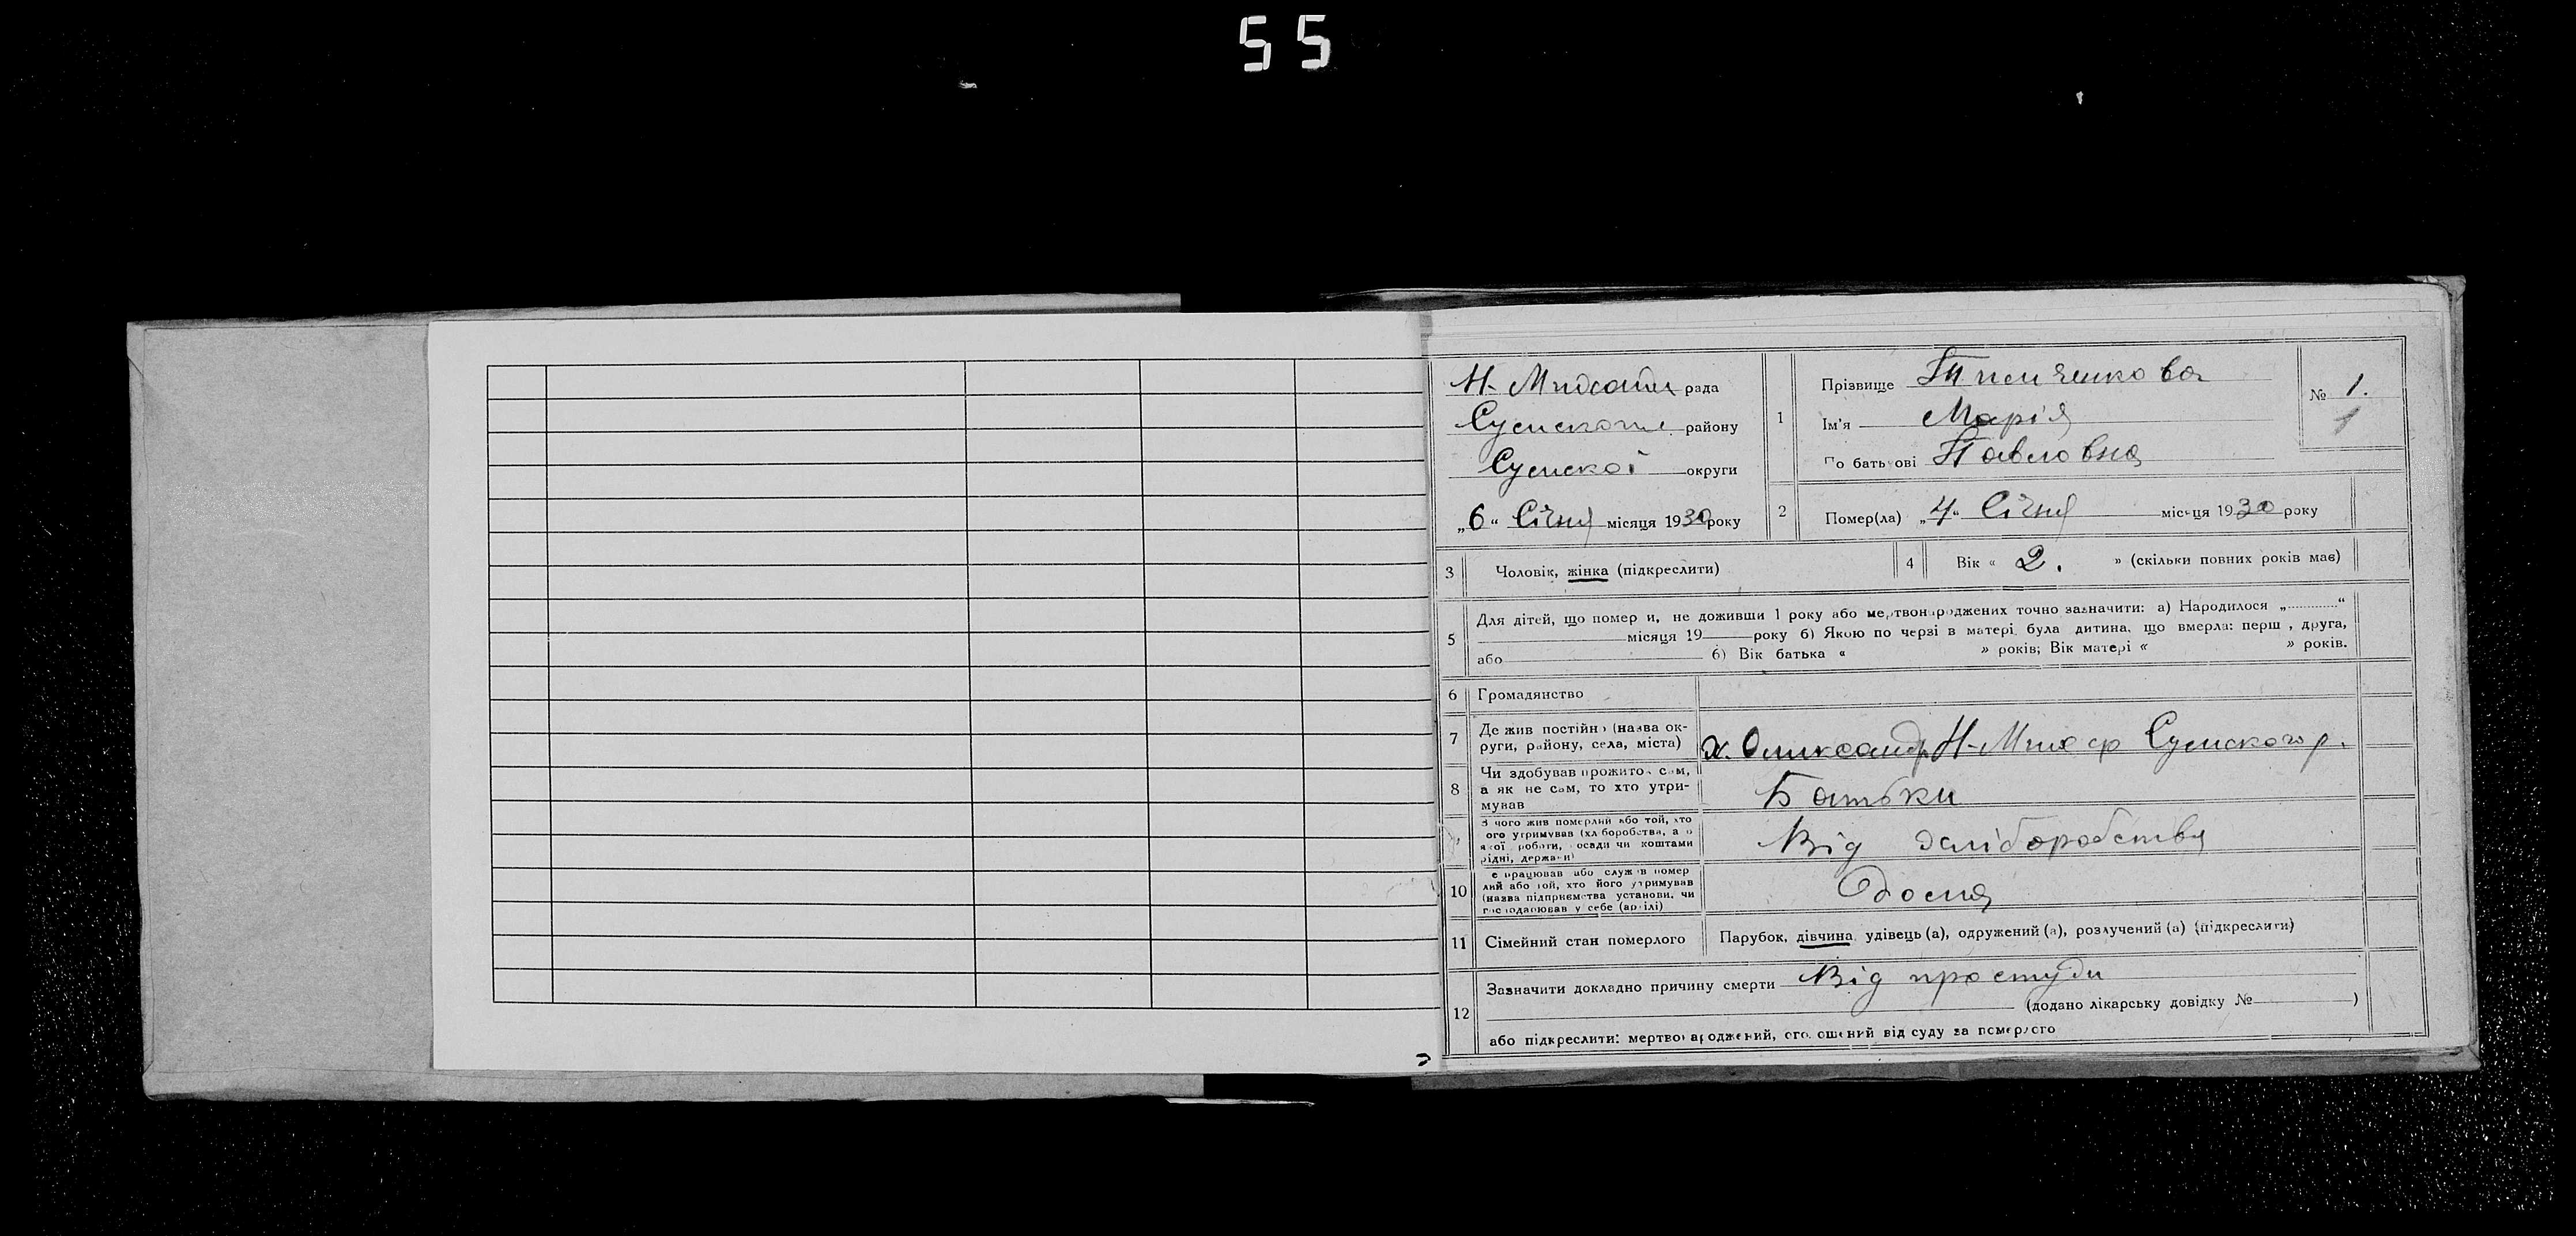 55
рада
Сумского району
Сумскої округи
„6“ Січня місяця 1930 року
1
Прізвище
Ім'я Марія
По батькові Павловна
№ 1.
1
2
Помер(ла) „4“ Січня місяця 1930 року
3
Чоловік, жінка (підкреслити)
4
Вік « 2. » (скільки повних років має)
5
Для дітей, що померли, не доживши 1 року або мертвонароджених точно зазначити: а) Народилося „ “
місяця 19 року б) Якою по черзі в матері була дитина, що вмерла: перш , друга,
або б) Вік батька « » років; Вік матері « » років.
6
Громадянство
7
Де жив постійно (назва ок-
руги, району, села, міста)
х. Сумского р.
8
Чи здобував прожиток сам,
а як не сам, то хто утри-
мував
Батьки
З чого жив померлий або той, хто
ого утримував (хліборобства, а о
якої роботи, посади чи коштами
рідні, держави)
Від
10
е працював або служив помер
лий або той, хто його утримував
(назва підприємства установи, чи
господарював у себе (артілі)
Дома
11
Сімейний стан померлого
Парубок, дівчина, удівець (а), одружений (а), розлучений (а) (підкреслити)
12
Зазначити докладно причину смерти Від простуди
(додано лікарську довідку № )
або підкреслити: мертвонароджений, оголошений від суду за померлого